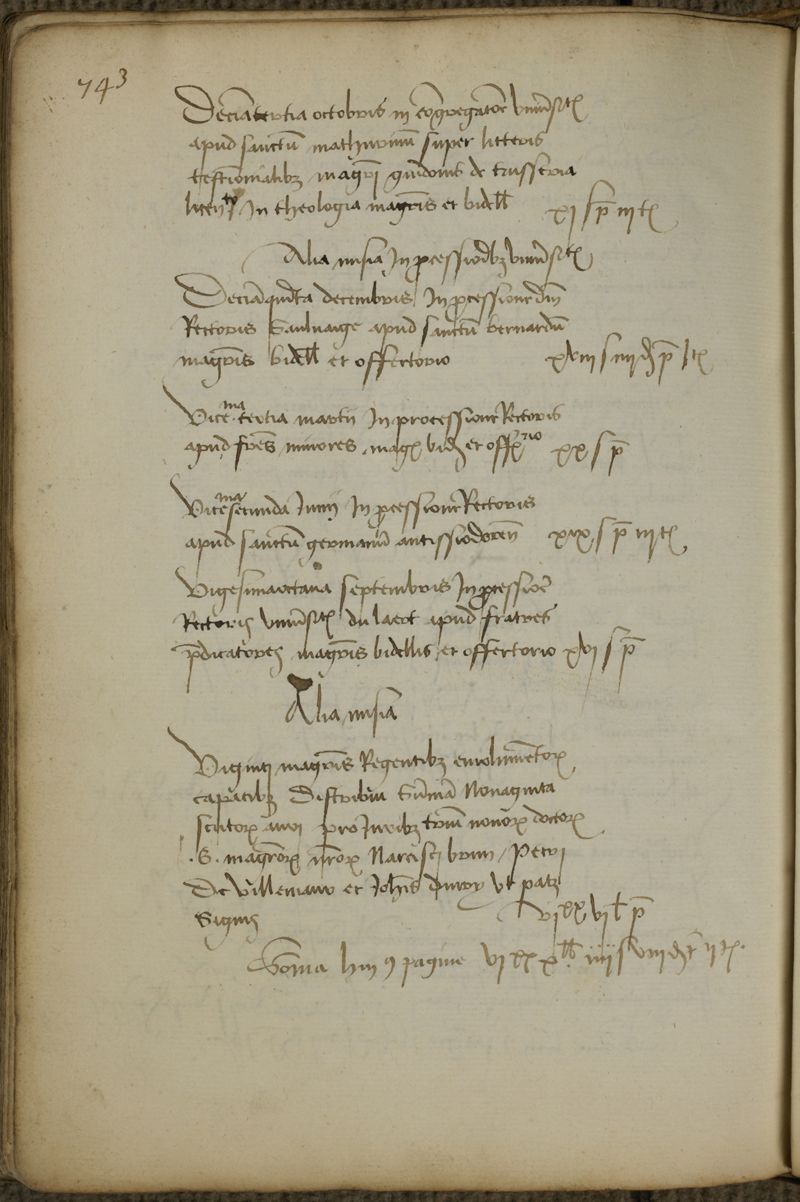 743
Decimatertia octobris in congregatione universitatis
apud sanctum mathurinum super litteris
testimonialibus magistri guidonis de
In theologia magistris et bidellis xj s p iij t
Alia misia In processionibus universitatis
Decimaquinta decembris In processione domini
Rectoris Sauluaige apud sanctum bernardum
magistris bidellis et offertorio xviij s iiij d p
Vicesima tertia martii In processione Rectoris
apud fratres minores magistris bidellis et offertorio xx s p
Vicesima secunda Junii In processione Rectoris
apud sanctum germanum antissiodorensem xix s p iij t
Vigesimaoctava septembris In processione
Rectoris universitatis apud fratres
predicatores magistris bidellis et offertorio xvj s p
Alia misia
Viginti magistris Regentibus emolumentorum
capacibus Distribui Summam Nonaginta
scutorum auri pro Juribus trium novorum doctorum
.S. magistrorum nostrorum Narcisci brun Petri
De Villemaur et Johannis ut patet
Signis vjxx vj l p
Somma huius pagine vjxx x ll iiij s viij d